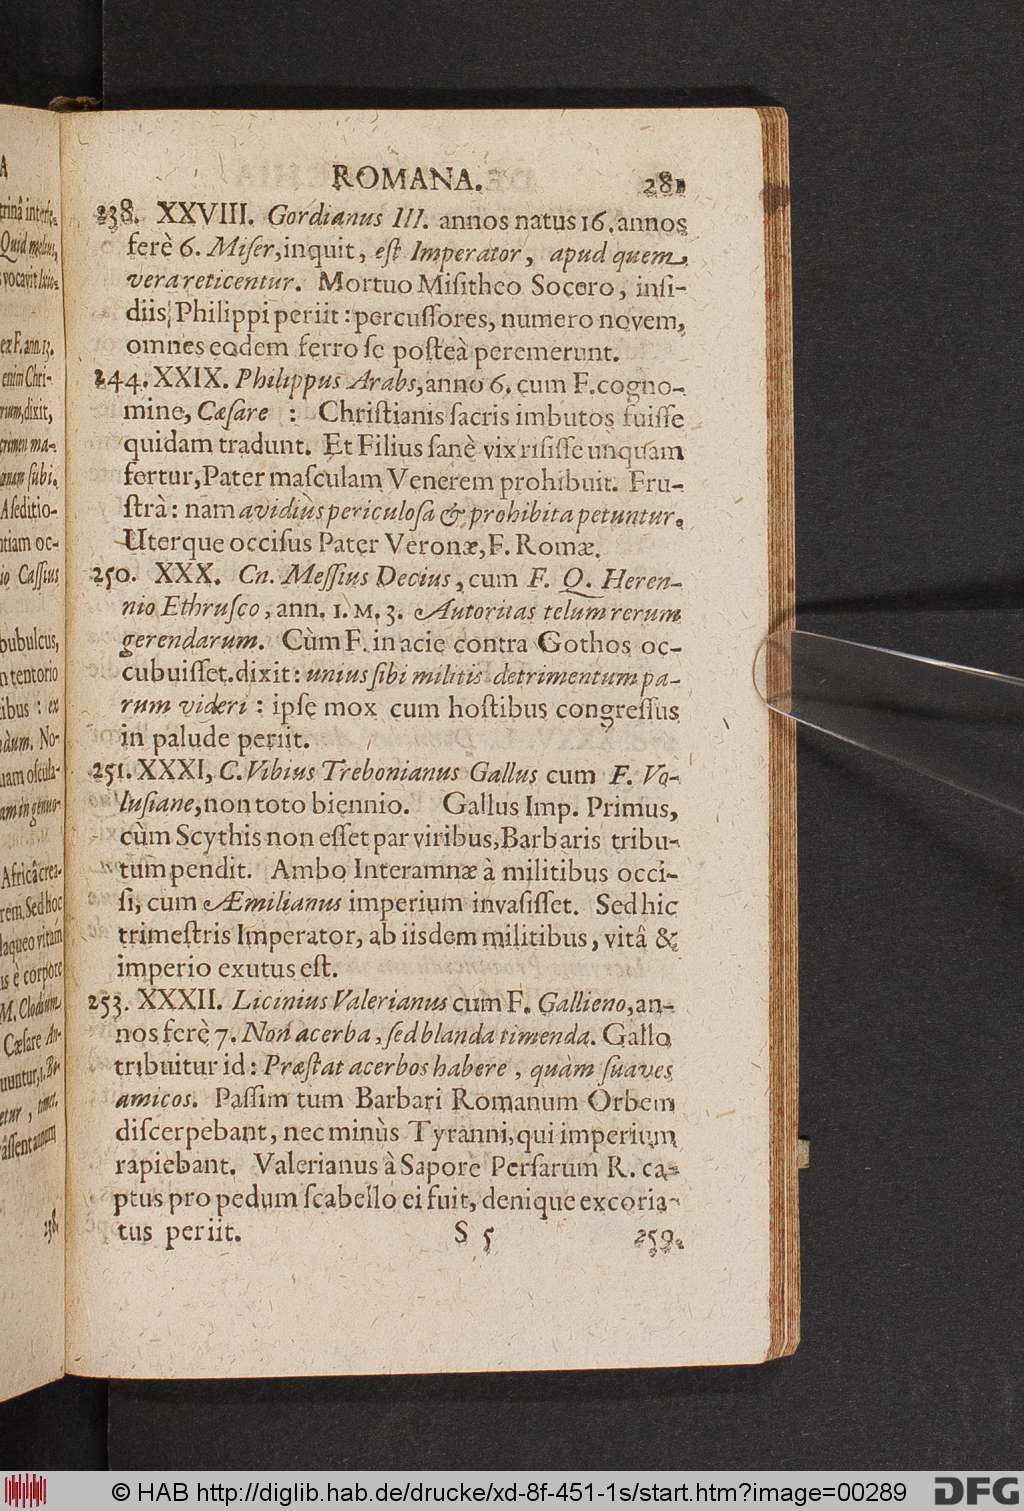 ROMANA. 281
238. XXVIII. Gordianus III. annos natus 16. annos
ferè 6. Miser, inquit, est Imperator, apud quem
vera reticentur. Mortuo Misitheo Socero, insi-
diis Philippi periit: percussores, numero novem,
omnes eodem ferro se posteà peremerunt.
244. XXIX. Philippus Arabs, anno 6. cum F. cogno-
mine, Cæsare : Christianis sacris imbutos fuisse
quidam tradunt. Et Filius sanè vix risisse unquam
fertur, Pater masculam Venerem prohibuit. Fru-
strà: nam avidiùs periculosa & prohibita petuntur.
Uterque occisus Pater Veronæ, F. Romæ.
250. XXX. Cn. Messius Decius, cum F. Q. Heren-
nio Ethrusco, ann. 1. M. 3. Autoritas telum rerum
gerendarum. Cùm F. in acie contra Gothos oc-
cubuisset. dixit: unius sibi militis detrimentum pa-
rum videri : ipse mox cum hostibus congressus
in palude periit.
251. XXXI, C. Vibius Trebonianus Gallus cum F. Vo-
lusiane, non toto biennio. Gallus Imp. Primus,
cùm Scythis non esset par viribus, Barbaris tribu-
tum pendit. Ambo Interamnæ à militibus occi-
si, cum Æmilianus imperium invasisset. Sed hic
trimestris Imperator, ab iisdem militibus, vitâ &
imperio exutus est.
253. XXXII. Licinius Valerianus cum F. Gallieno, an-
nos ferè 7. Non acerba, sed blanda timenda. Gallo
tribuitur id: Præstat acerbos habere, quàm suaves
amicos. Passim tum Barbari Romanum Orbem
discerpebant, nec minùs Tyranni, qui imperium
rapiebant. Valerianus à Sapore Persarum R. ca-
ptus pro pedum scabello ei fuit, denique excoria-
tus periit. S 5 259.
© HAB http://diglib.hab.de/drucke/xd-8f-451-1s/start.htm?image=00289
DFG